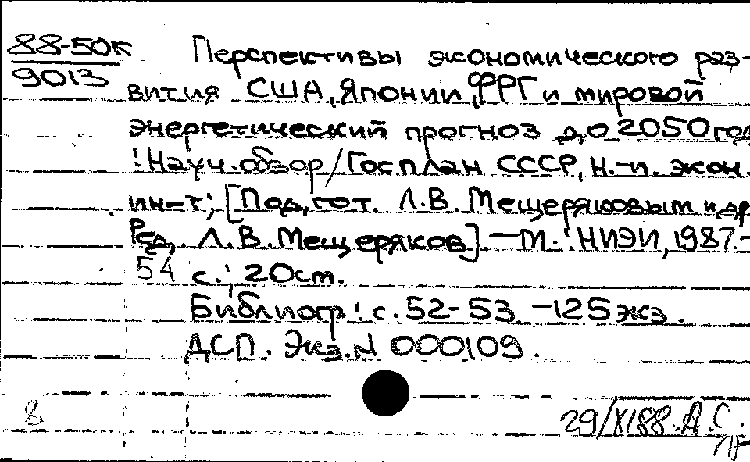 88-50к
9013
Перспективы экономического раз-
вития США, Японии, ФРГ и мировой
энергетический прогноз до 2050 год
: Науч. обзор / Госплан СССР, Н.-и. экон.
ин-т; [Подгот. Л.В. Мещеряковым и др
Ред. Л.В. Мещеряков] — М. : НИЭИ, 1987.-
54 с.; 20 см.
Библиогр: с. 52-53 - 125 экз.
ДСП. Экз. N 000109.
8
29/XI88. А.С.